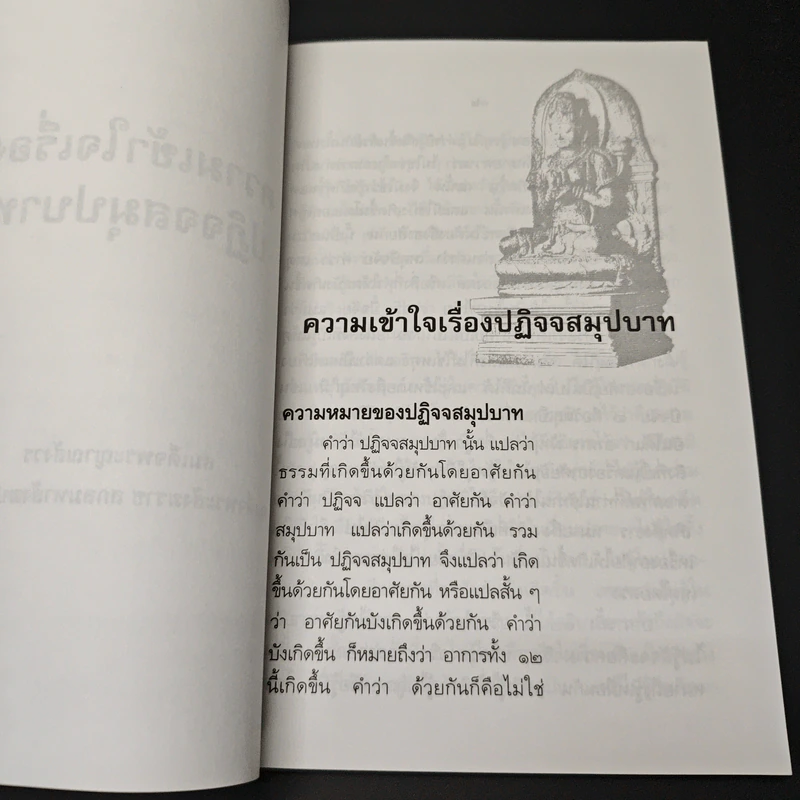 ความเข้าใจเรื่องปฏิจจสมุปบาท
ความหมายของปฏิจจสมุปบาท
คำว่า ปฏิจจสมุปบาท นั้น แปลว่า
ธรรมที่เกิดขึ้นด้วยกันโดยอาศัยกัน
คำว่า ปฏิจจ แปลว่า อาศัยกัน คำว่า
สมุปบาท แปลว่าเกิดขึ้นด้วยกัน รวม
กันเป็น ปฏิจจสมุปบาท จึงแปลว่า เกิด
ขึ้นด้วยกันโดยอาศัยกัน หรือแปลสั้น ๆ
ว่า อาศัยกันบังเกิดขึ้นด้วยกัน คำว่า
บังเกิดขึ้น ก็หมายถึงว่า อาการทั้ง ๑๒
นี้เกิดขึ้น คำว่า ด้วยกันก็คือไม่ใช่